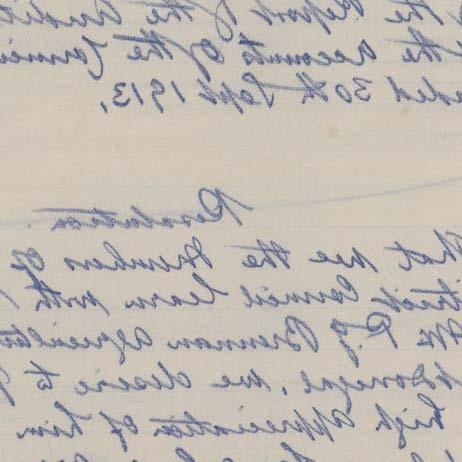 the Report of the Audit
the accounts of the Counci
ended 30th Sept 1913,
Resolution.
That we the members of
trict Council learn with
Mr P. J. Brennan Agricultu
Donegal, we desire to
high appreciation of him